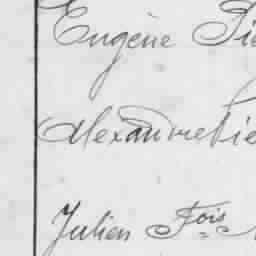 Eugène Pie
Alexandre Pie
Julien Fois